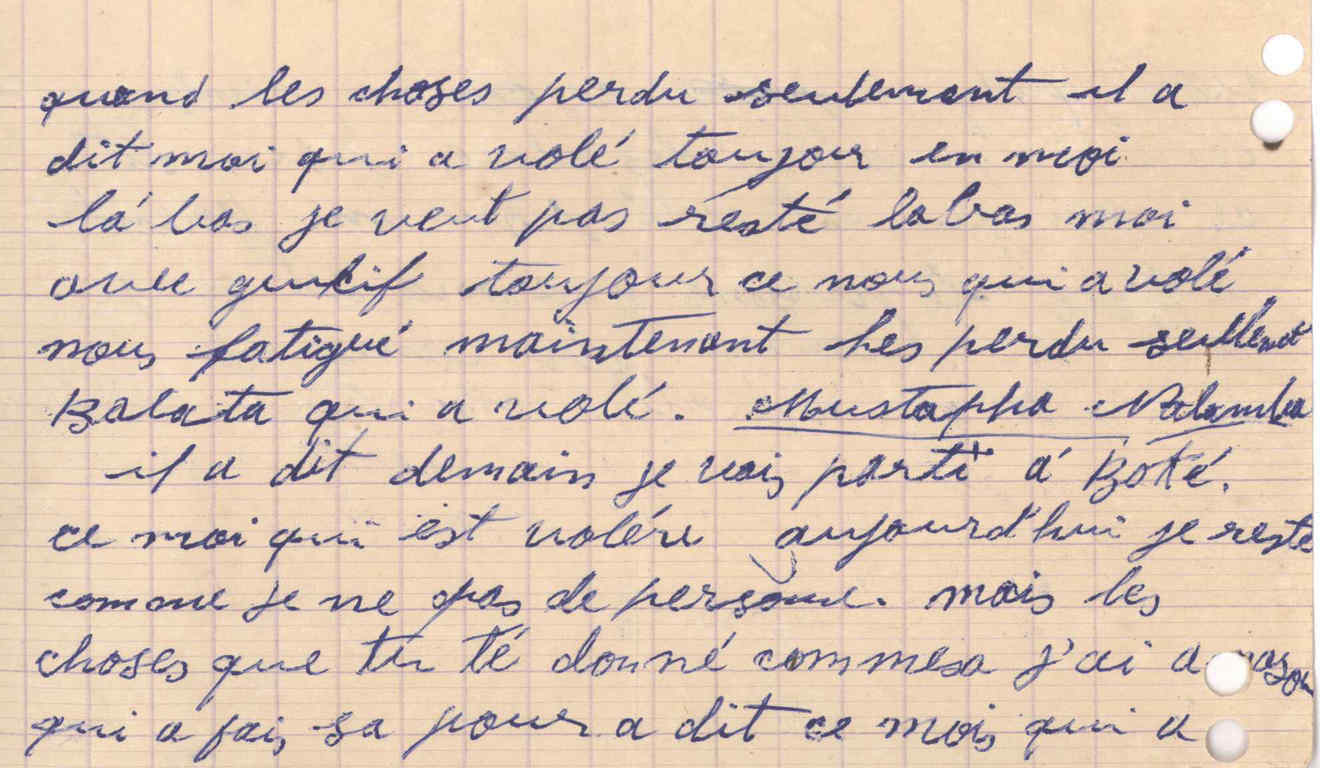 quand les choses perdu seulement il a
dit moi qui a volé toujour en moi
lá bas je veut pas resté labas moi
avec toujour ce nous qui a volé
nous fatigué maintenant les perdu seullemet
Balata qui a volé. Mustapha
il a dit demain je vais parti á Boté.
ce moi qui est voléru aujourd'hui je reste
comme je ne pas de persone. mais les
choses que tu té donné commesa j'ai a
qui a fais sa pour a dit ce mois qui a